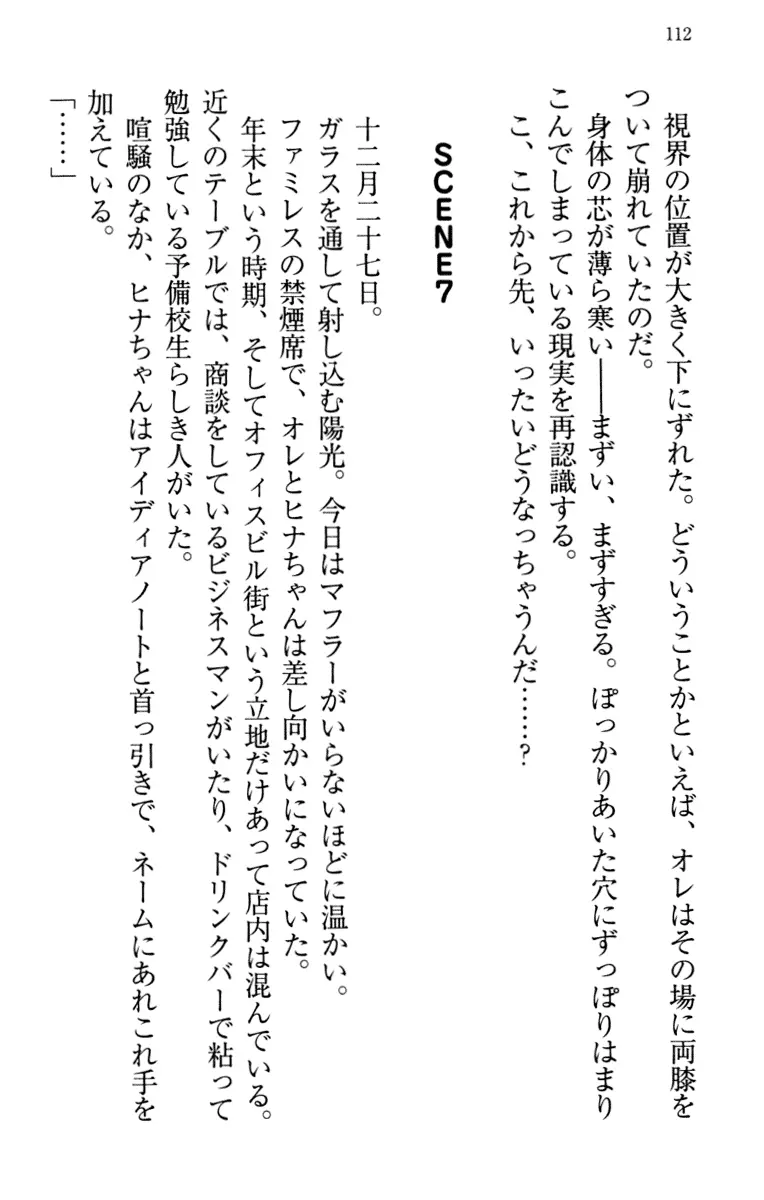 112
視界の位置が大きく下にずれた。どういうことかといえば、オレはその場に両膝を
ついて崩れていたのだ。
身体の芯が薄ら寒い――まずい、まずすぎる。ぽっかりあいた穴にずっぽりはまり
こんでしまっている現実を再認識する。
こ、これから先、いったいどうなっちゃうんだ……?
SCENE7
十二月二十七日。
ガラスを通して射し込む陽光。今日はマフラーがいらないほどに温かい。
ファミレスの禁煙席で、オレとヒナちゃんは差し向かいになっていた。
年末という時期、そしてオフィスビル街という立地だけあって店内は混んでいる。
近くのテーブルでは、商談をしているビジネスマンがいたり、ドリンクバーで粘って
勉強している予備校生らしき人がいた。
喧騒のなか、ヒナちゃんはアイディアノートと首っ引きで、ネームにあれこれ手を
加えている。
「……」